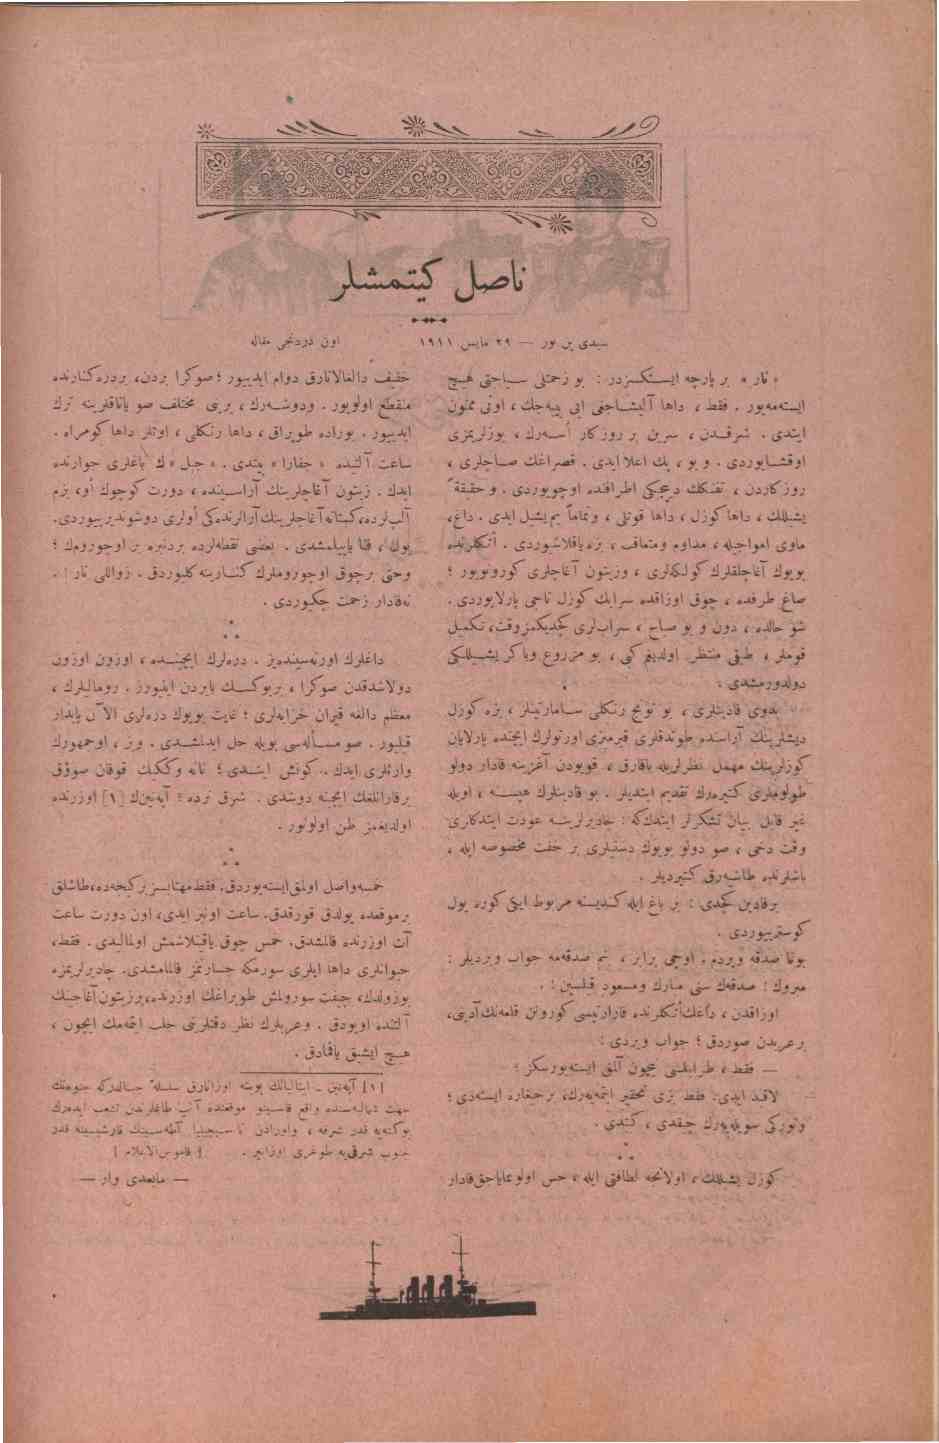 ناصل كيتمشلر
سيدى بن نور — ٢٩ مايس ١٩١١ اون دردنجى مقاله
« نار » بر پارچه ايستكسزدر : بو زحمتلى سياحتى هيچ
ايسته‌مه‌يور . فقط ، داها آليشاجغى ايى بيله‌جك ، اونى ممنون
ايتدى . شرقدن ، سرين بر روزكار أسه‌رك ، يوزلريمزى
اوقشايوردى . و بو ، پك اعلا ايدى . قصراغك صاچلرى ،
روزكاردن ، تفنكك اطرافنده اوچويوردى . و حقيقةً
يشيللك ، داها كوزل ، داها قوتلى ، وتماماً يم يشيل ايدى . داغ ،
ماوى امواجيله ، مداوم ومتعاقب ، بزه ياقلاشوردى . أتكلرنده
بويوك آغاجلقلرك كولكه‌لرى ، وزيتون آغاجلرى كورونويور ؛
صاغ طرفده ، چوق اوزاقده سرابك كوزل ناحى پارلايوردى .
شو حالده ، دون و بو صباح ، سرابلرى كچديكمز وقت ، تكميل
قوملر ، طبقى منتظر اولديغم كبى ، بو مزروع وپاكر يشيللكى
دولدورمشدى .
بدوى قادينلرى ، بو تونج رنكلى سامارتينلر ، بزه كوزل
ديشلرينك آراسنده طوتدقلرى قيرمزى اورتولرك ايچنده پارلايان
كوزلرينك مهمل نظرلريله باقارق ، قويودن آغزينه قادار دولو
طولوملرى كتيره‌رك تقديم ايتديلر . بو قادينلرك هپسنه ، اويله
غير قابل بيان تشكرلر ايتدك كه : چادرلرينه عودت ايتدكلرى
وقت دخى ، صو دولو بويوك دستيلرى بر خفت مخصوصه ايله ،
باشلرنده طاشيه‌رق كتيرديلر .
بر قادين كچدى : بر باغ ايله كنديسنه مربوط ايكى كوره يول
كوستريوردى .
بوكا صدقه ويردم . اوچى برابر ، بنم صدقه‌مه جواب ويرديلر :
مبروك : صدقه‌ك سنى مبارك ومسعود قيلسين ! .
اوزاقدن ، داغك أتكلرنده قارارتيسى كورونن قلعه‌نك آدينى ،
بر عربدن صوردق ؛ جواب ويردى :
— فقط ، طرابلسى نيچون آلمق ايسته‌يورسكز ؟
لاقيد ايدى . فقط بزى تحقير ايتمه‌يه‌رك ، بر جيغاره ايسته‌دى ؛
وتوركى سويليه‌رك چيقدى ، كيتدى .
كوزل يشيللك ، اولانجه لطافتى ايله ، حس اولونمايه‌جق قادار
خفيف دالغالانارق دوام ايدييور ؛ صوكرا بردن ، بر دره كنارنده
منقطع اولويور . ودوشه‌رك ، يرينى مختلف صو ياتاقلرينه ترك
ايدييور . بوراده طوپراق ، داها رنكلى ، اوتلر داها كومراه .
ساعت آلتيده « جفارا » بيتدى . « جبل » ك باغلرى جوارنده
ايدك . زيتون آغاجلرينك آراسينده ، دورت كوچوك أو ، بزم
آلپلرده ، كستانه آغاجلرينك آرالرنده‌كى أولرى دوشونديرييوردى .
يول ، فنا ياپيلمشدى . بعضى نقطه‌لرده بردنبره بر اوچوروم ؛
وحتى بر چوق اوچوروملرك كنارينه كليوردق . زواللى نار ! .
نه قادار زحمت چكيوردى .
داغلرك اورته‌سينده‌يز . دره‌لرك ايچنده ، اوزون اوزون
دولاشدقدن صوكرا ، بر يوكسك بايردن اينيورز . رومالیلرك ،
معظم دالغه قيران خرابه‌لرى ؛ غايت بويوك دره‌لرى الآن پايدار
قيليور . صو مسأله‌سى بويله حل ايدلمشدى . وبز ، او جمهورك
وارثلرى ايدك . كونش ايندى ؛ نانه وككيك قوقان صوؤق
بر قارانلغك ايچنه دوشدى . شرق نرده ؟ آپه‌نين‌ك [١] اوزرنده
اولديغمز ظن اولونور .
خمسه واصل اولمق ايسته‌يوردق . فقط مهتابسز بر كيجه‌ده ، طاشلق
بر موقعده يولدن قورقدق . ساعت اونبر ايدى ، اون دورت ساعت
آت اوزرنده قالمشدق . خمس چوق ياقينلاشمش اولمالیدى . فقط ،
حيوانلرى داها ايلرى سورمكه جسارتمز قالمامشدى . چادرلريمزه
بوزولدك ، چيفت سورولمش طوپراغك اوزرنده ، بر زيتون آغاجينك
آلتنده اويودق . وعربلرك نظر دقتلرينى جلب ايتمه‌مك ايچون ،
هيچ ايشيق ياقمادق .
[١] آپه‌نين ـ ايتاليانك بوينه اوزانارق سلسله جبالدركه جنوه‌نك
جهت شماليه‌سنده واقع موقعنده آلپ طاغلرندن تشعب ايده‌رك
قدر شرقه ، واورادن ده سيجيليا آطه‌سينك قارشيسينه قدر
جنوب شرقى‌يه طوغرى اوزانير . [ قاموس الاعلام ]
— مابعدى وار —